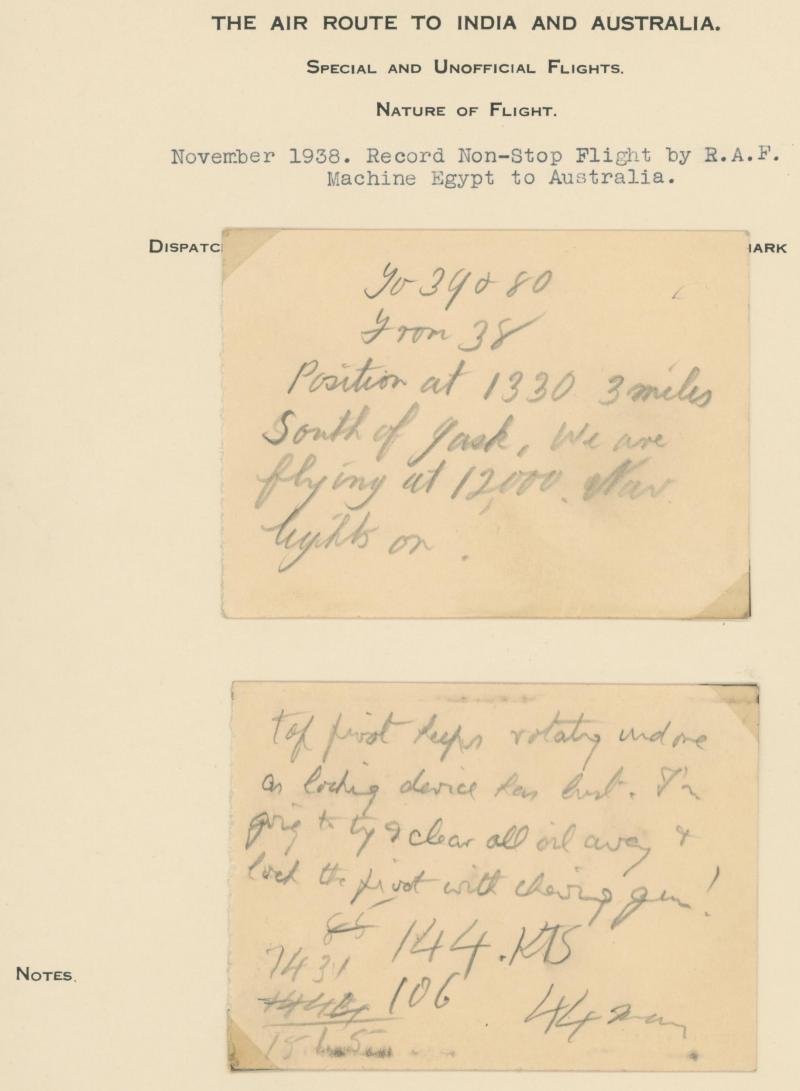 THE AIR ROUTE TO INDIA AND AUSTRALIA.
SPECIAL AND UNOFFICIAL FLIGHTS.
NATURE OF FLIGHT.
November 1938. Record Non-Stop Flight by R.A.F.
Machine Egypt to Australia.
DISPATC
MARK
To 39 & 80
From 38
Position at 1330 3 miles
South of Jask, We are
flying at 12,000. Nav
lights on.
top pivot keeps rotating undone
as locking device has bust. I'm
going to try & clear all oil away &
lock the pivot with chewing gum!
85
144.KTS
7431
106
44
NOTES.